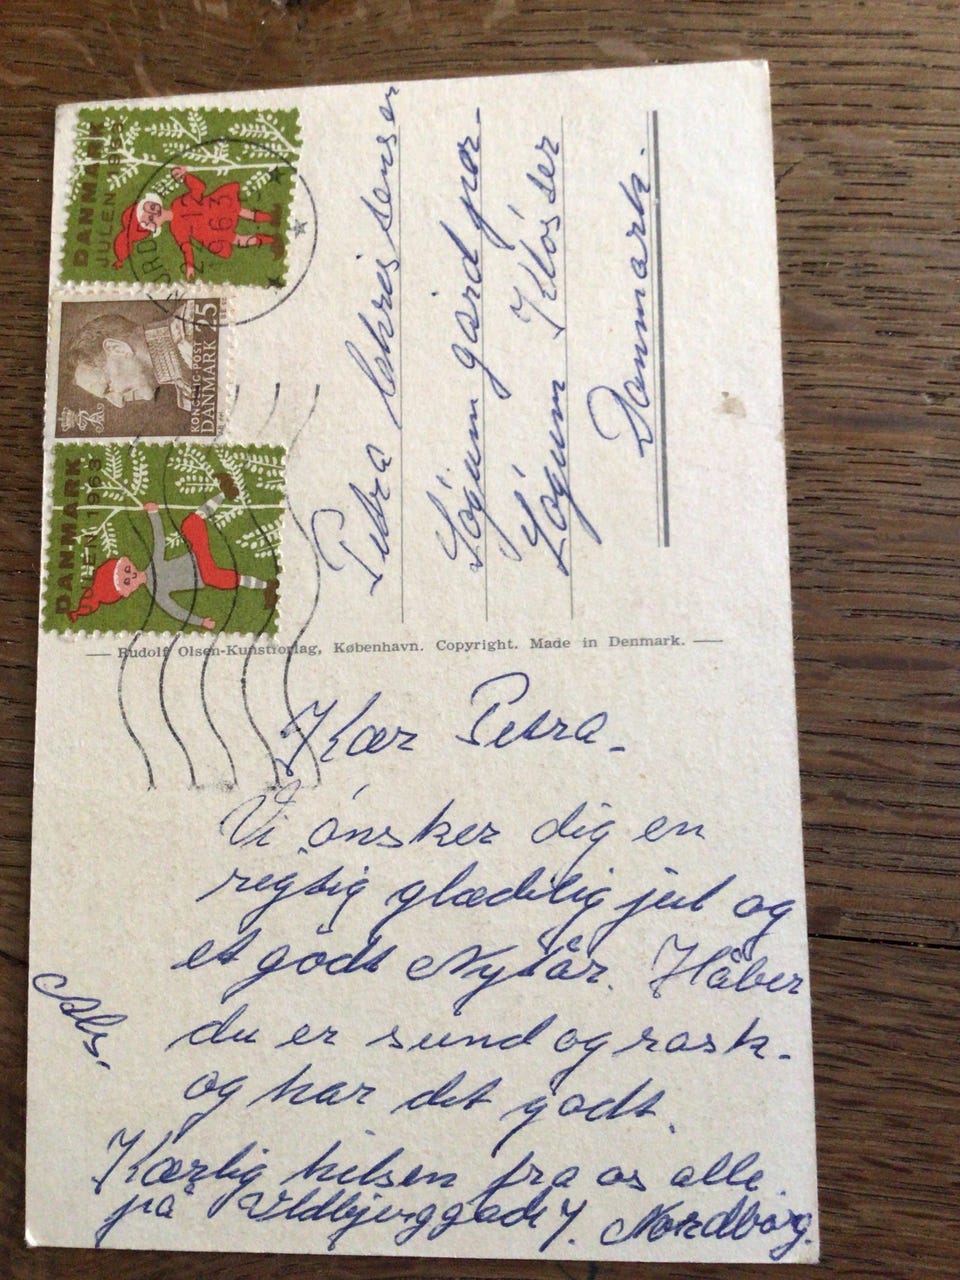 DANMARK
JULEN 1963
KONGELIG POST
DANMARK 25
DANMARK
JULEN 1963
Petra Christensen
Løgum gård pr
Løgum Kloster
Danmark.
Rudolf Olsen-Kunstforlag, København. Copyright. Made in Denmark.
Kær Petra.
Vi ønsker dig en
rigtig glædelig jul og
et godt Nytår. Håber
du er sund og rask.
og har det godt.
Kærlig hilsen fra os alle
på 7. Nordborg.